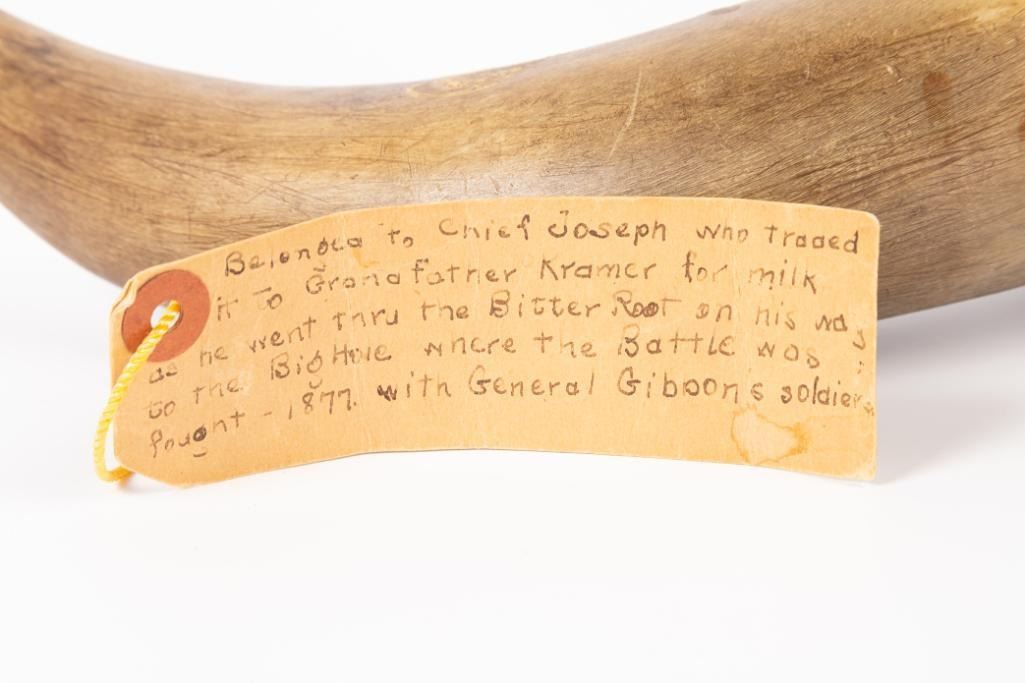 Belonged to Chief Joseph who traded
it to Grandfather Kramer for milk
as he went thru the Bitter Root on his way
to the Big Hole where the Battle was
fought - 1877. with General Gibbons soldiers